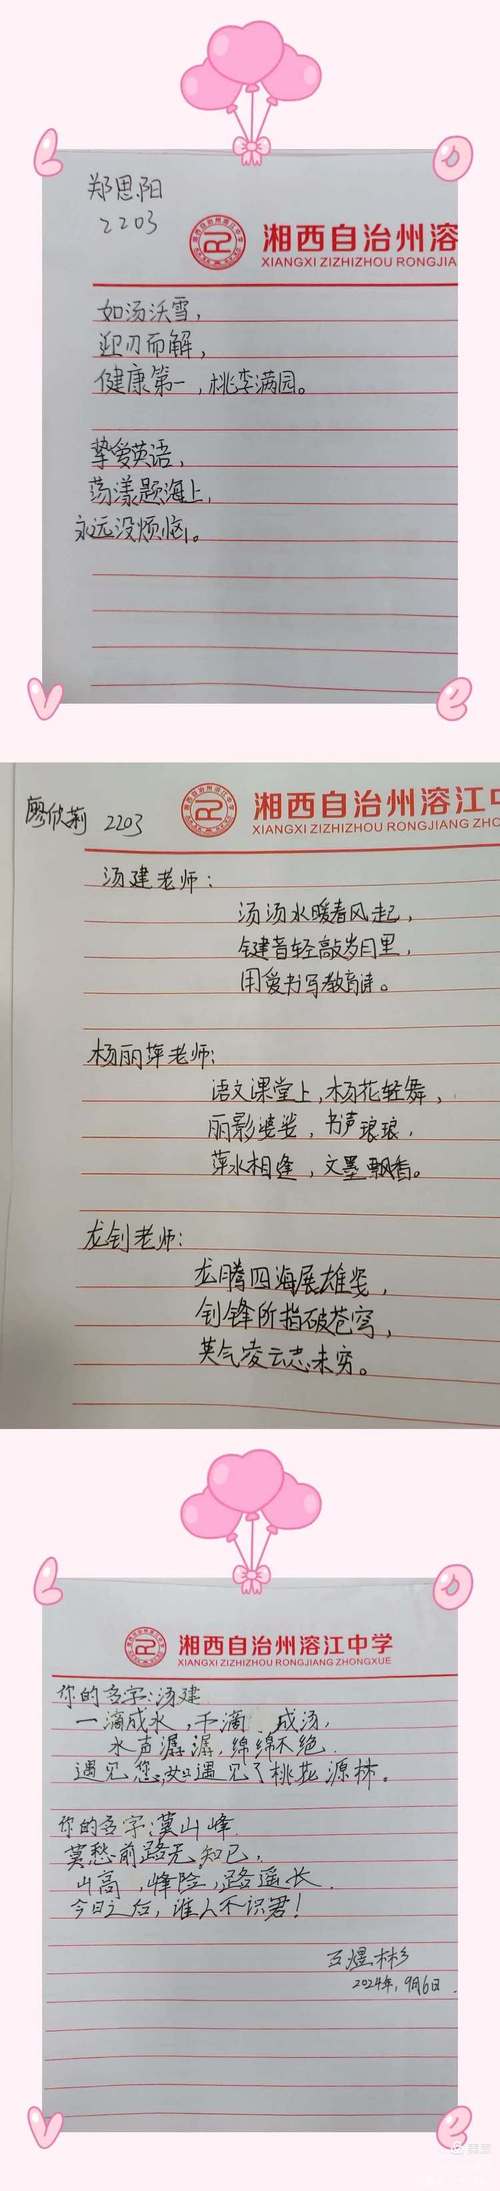 L O
郑思阳
2203
湘西自治州溶
XIANGXI ZIZHIZHOU RONGJIA
如汤沃雪，
迎刃而解，
健康第一，桃李满园。
挚爱英语，
荡漾题海上，
永远没烦恼。
V e
廖欣莉 2203
湘西自治州溶江中
XIANGXI ZIZHIZHOU RONGJIANG ZHO
汤建老师：
汤汤水暖春风起，
键音轻敲岁月里，
用爱书写教育诗。
杨丽萍老师：
语文课堂上，杨花轻舞，
丽影婆娑，书声琅琅，
萍水相逢，文墨飘香。
龙钊老师：
龙腾四海展雄姿，
钊锋所指破苍穹，
英气凌云志未穷。
L O
湘西自治州溶江中学
XIANGXI ZIZHIZHOU RONGJIANG ZHONGXUE
你的名字：汤建
一滴成水，千滴成汤，
水声潺潺，绵绵不绝
遇见您，如遇见了桃花源林。
你的名字：莫山峰
莫愁前路无知己，
山高，峰险，路遥长
今日之后，谁人不识君！
煜彬
2024年，9月6日．
V e